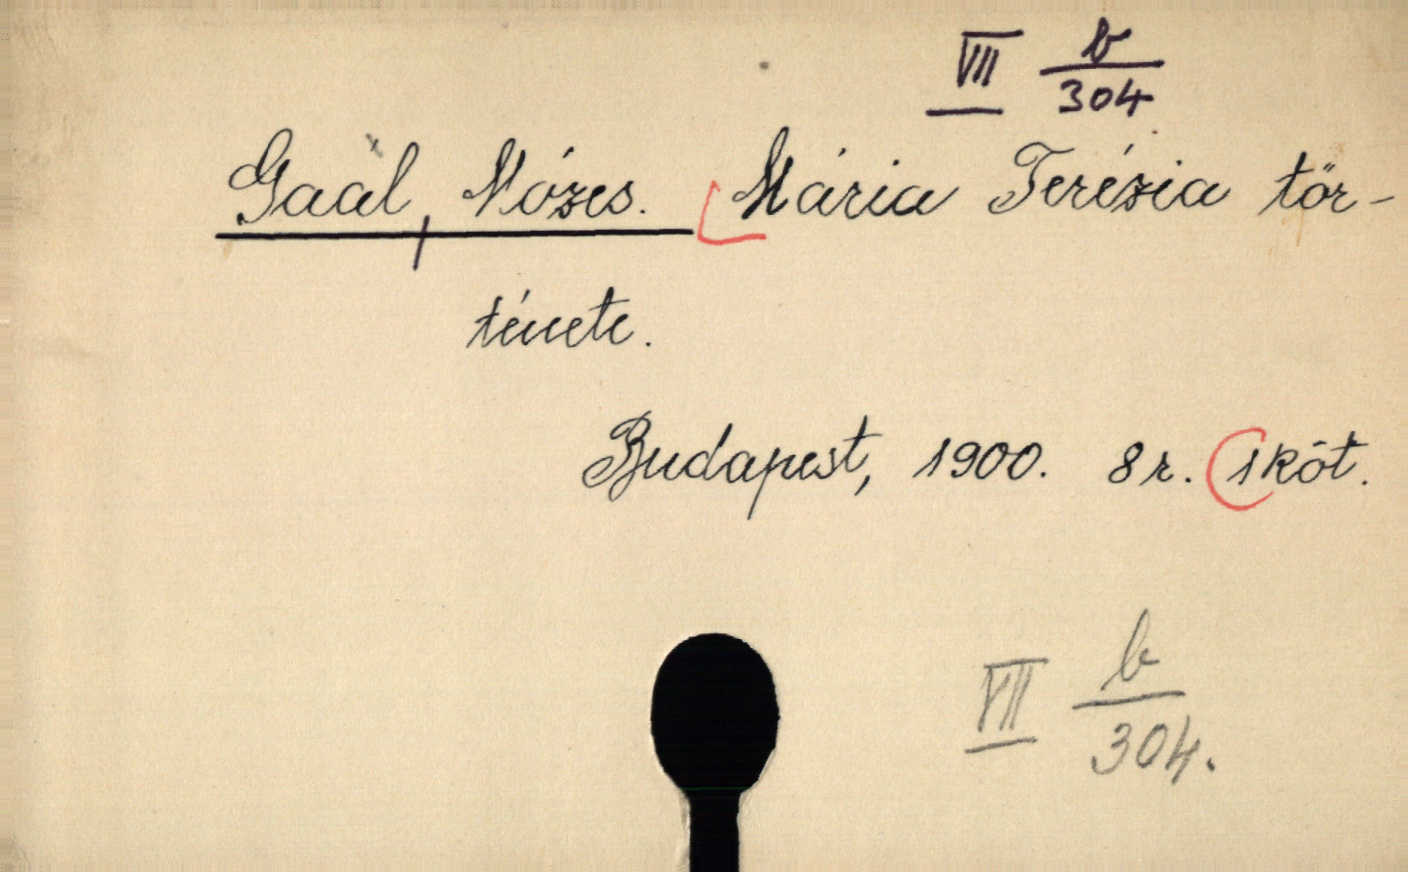 VII b/304
Gaál, Mózes. Mária Terézia tör-
ténete.
Budapest, 1900. 8 r. 1 köt.
VII b/304.